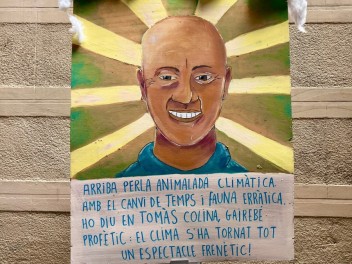 ARRIBA PERLA ANIMALADA CLIMÀTICA
AMB EL CANVI DE TEMPS I FAUNA ERRÀTICA.
HO DIU EN TOMÀS COLINA, GAIREBÉ
PROFÈTIC: EL CLIMA S'HA TORNAT TOT
UN ESPECTACLE FRENÈTIC!